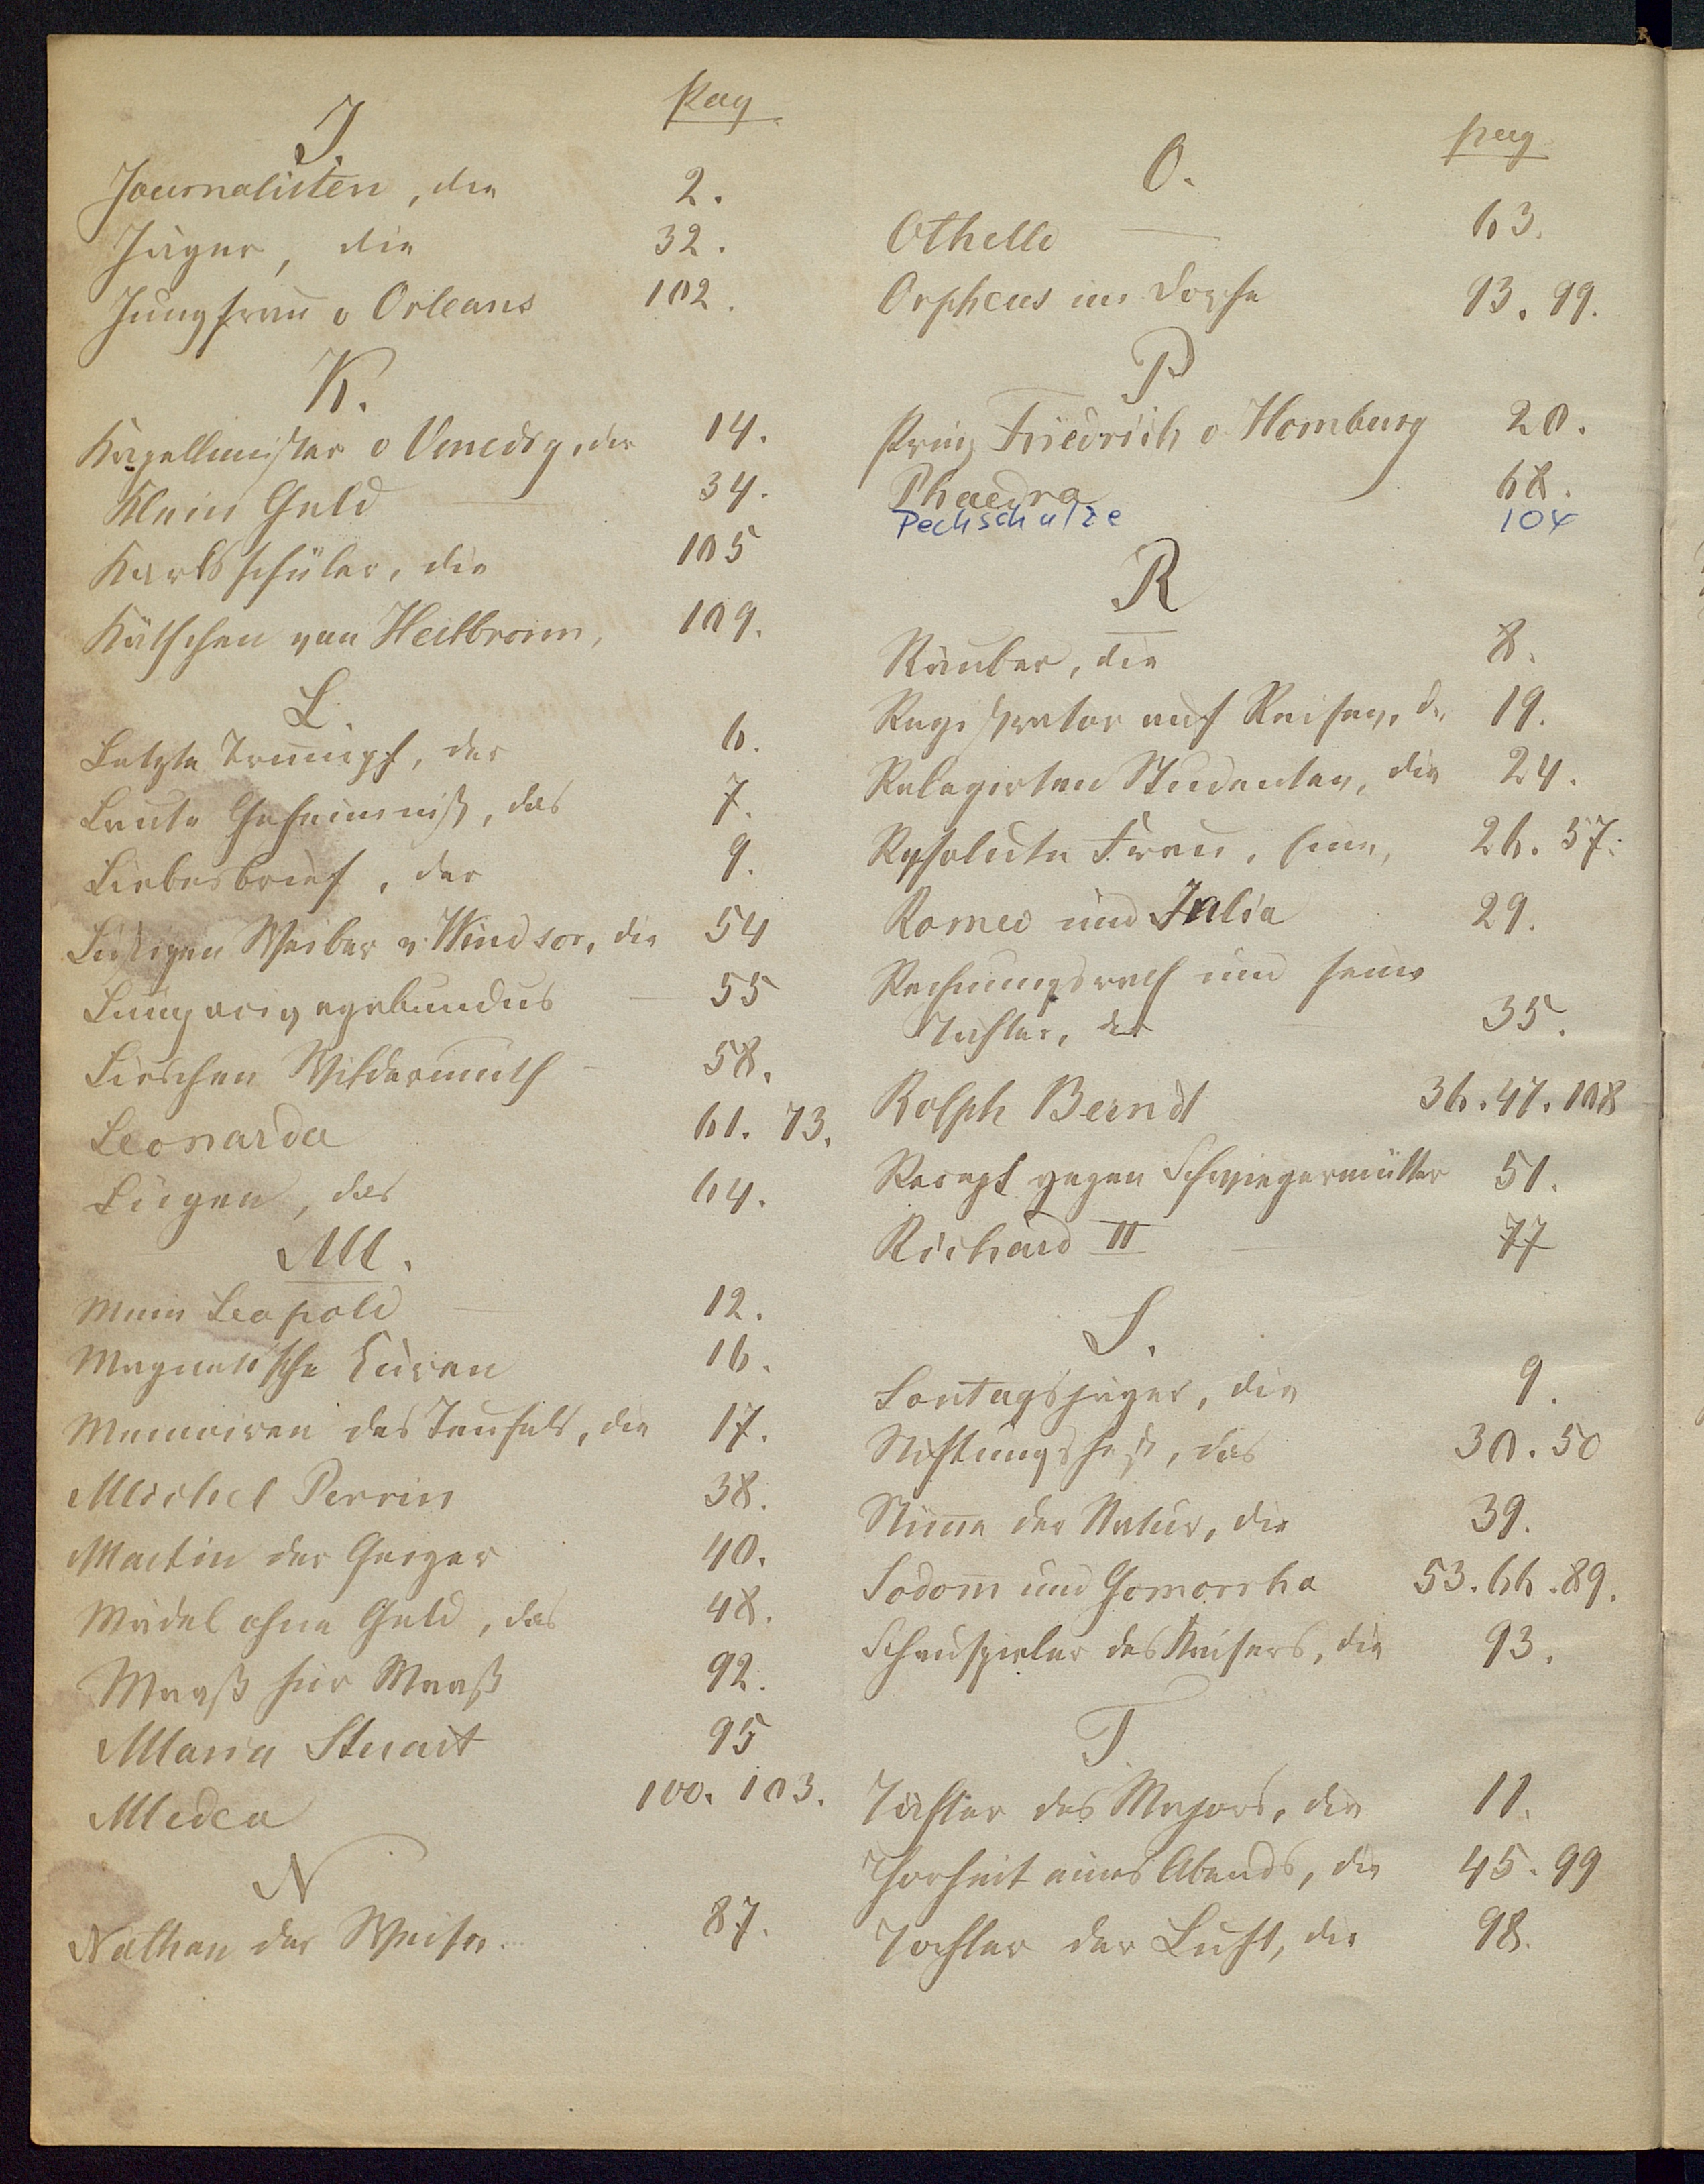 Pag
J.
Journalisten, die 2.
Jäger, die 32.
Jungfrau v Orleans 102.
K.
Kapellmeister v Venedig, der 14.
Klein Geld 34.
Karlsschüler, die 105
Kätchen von Heilbronn, 109.
L.
Letzte Trumpf, der 6.
Laute Geheimniß, das 7.
Liebesbrief, der 9.
Lustigen Weiber v. Windsor, die 54
Lumpacivagabundus 55
Lieschen Wildermuth 58.
Leonarda 61. 73.
Lügen, das 64.
M.
Mein Leopold 12.
Magnetische Curen 16.
Memoiren des Teufels, die 17.
Michel Perrin 38.
Martin der Geiger 40.
Mädel ohne Geld, das 48.
Maaß für Maaß 92.
Maria Stuart 95
Medea 100. 103.
N
Nathan der Weise. 87.
pag
O.
Othello 63.
Orpheus im Dorfe 93. 99.
P
Prinz Friedrich v Homburg 20.
Phaedra 68.
Pechschulze 104
R
Räuber, die 8.
Registrator auf Reisen, d. 19.
Relegirten Studenten, die 24.
Resolute Frau, eine, 26. 57.
Romeo und Julia 29.
Rechnungsrath und seine
Töchter, der 35.
Rolph Berndt 36. 47. 108
Recept gegen Schwiegermütter 51.
Richard II 77
S.
Sontagsjäger, die 9.
Stiftungsfest, das 30. 50
Stimme der Natur, die 39.
Sodom und Gomorrha 53. 66. 89.
Schauspieler des Kaisers, die 93.
T
Töchter des Majors, die 11.
Thorheit eines Abends, die 45. 99
Tochter der Luft, die 98.